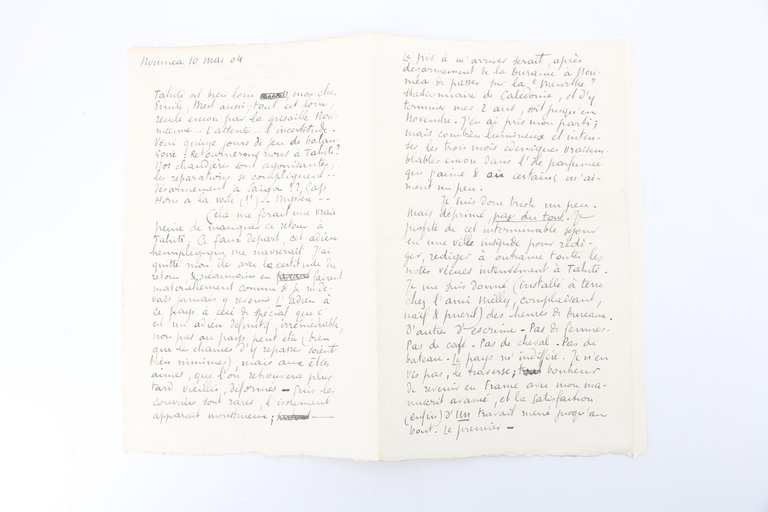 Nouméa 10 Mai 04
Tahiti est bien loin, mon cher
Emile, Brest aussi; tout est loin,
rendu encor par la grisaille Nou-
méenne.. L'attente.. l'incertitude.
Voici quinze jours de jeu de balan-
çoire: Retournerons nous à Tahiti?
Nos chaudières sont agonisantes..
les réparations se compliquent..
désarmement à Saïgon ??, Cap
Horn à la voile (!!).. Mystère..
Cela me ferait une vraie
peine de manquer ce retour à
Tahiti. Ce faux départ, cet adieu
hémiplégique, me navrerait. J'ai
quitté mon île avec la certitude du
retour, & néanmoins en faisant
matériellement comme si je ne de-
vais jamais y revenir. L'adieu à
ce pays a ceci de spécial que c'
est un adieu définitif, irrémédiable,
non pas au pays, peut-être (bien
que les chances d'y repasser soient
bien minimes), mais aux êtres
aimés, que l'on retrouvera plus
tard vieillis, déformés - Puis les
courriers sont rares, l'isolement
apparait monstrueux;
Le pis à m'arriver serait, après
désarmement de la Durance à Nou-
méa de passer sur la "Meurthe"
stationnaire de Calédonie, et d'y
terminer mes 2 ans, soit jusqu'en
Novembre. J'en ai pris mon parti;
mais combien lumineux et inten-
ses les trois mois édéniques vraisem-
blables encor dans l'île parfumée
que j'aime & où certains m'ai-
ment un peu.
Je suis donc triste un peu.
Mais déprimé, pas du tout. Je
profite de cet interminable séjour
en une ville insipide pour rédi-
ger, rédiger à outrance toutes les
notes vécues intensément à Tahiti.
Je me suis donné (installé à terre
chez l'ami Mélly, complaisant,
naïf & puéril) des heures de bureau.
D'autres d'escrime - Pas de femmes.
Pas de café - Pas de cheval - Pas de
bateau. Le pays m'indiffère. Je n'en
vis pas, le traverse; bonheur
de revenir en France avec mon ma-
nuscrit avancé, et la satisfaction
(enfin) d'un travail mené jusqu'au
bout. Le premier -